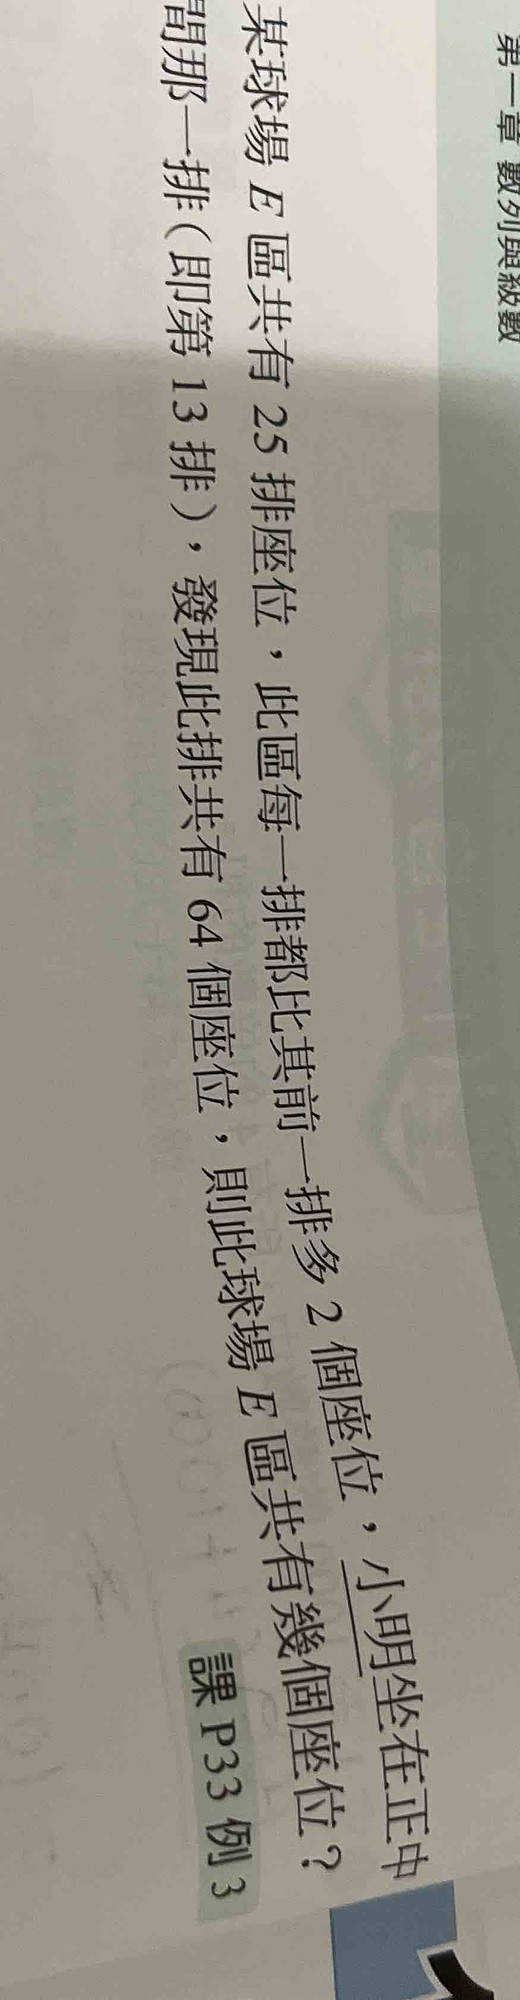 第一章 數列與級數
某球場 E 區共有 25 排座位，此區每一排都比其前一排多 2 個座位，小明坐在正中
間那一排（即第 13 排），發現此排共有 64 個座位，則此球場 E 區共有幾個座位？
課 P33 例 3